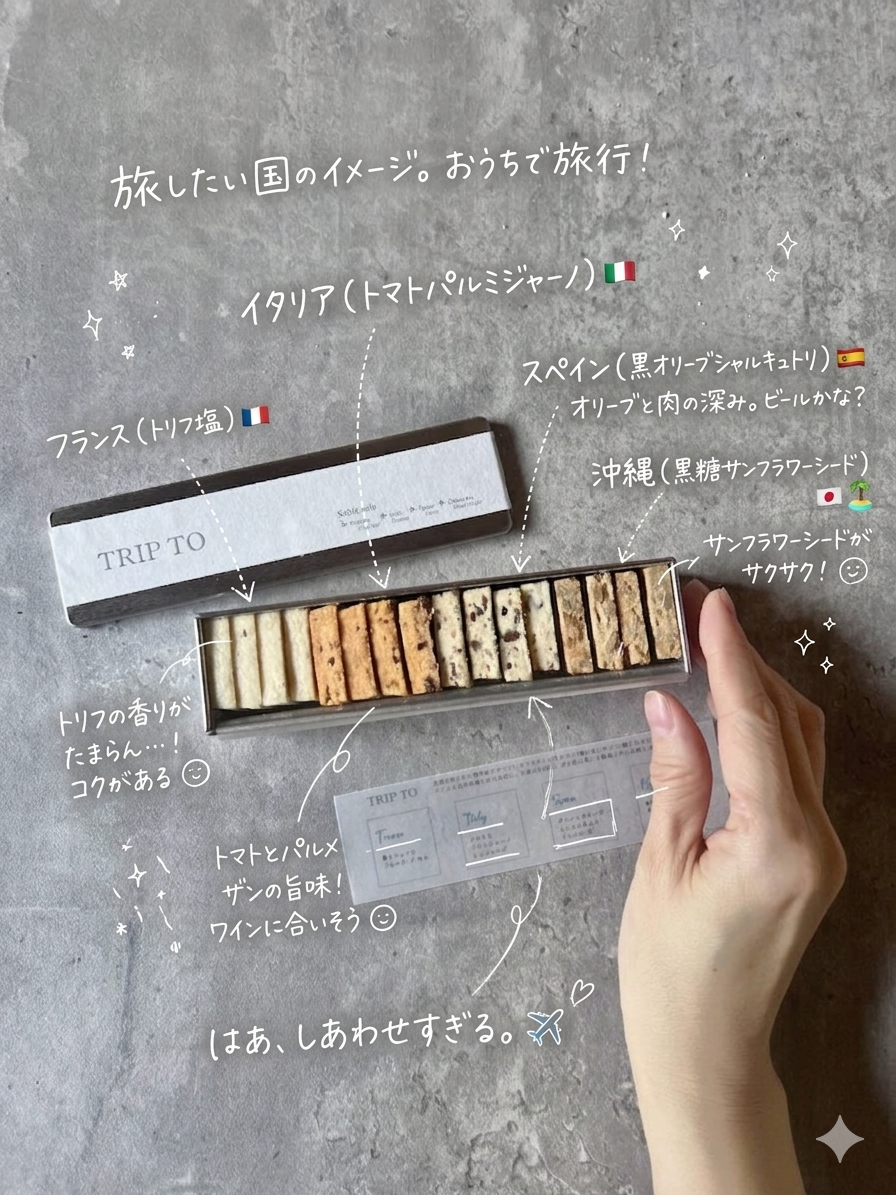 旅したい国のイメージ。おうちで旅行！
イタリア（トマトパルミジャーノ）🇮🇹
スペイン（黒オリーブシャルキュトリ）🇪🇸
オリーブと肉の深み。ビールかな？
フランス（トリフ塩）🇫🇷
沖縄（黒糖サンフラワーシード）
🇯🇵🏝️
サンフラワーシードが
サクサク！
TRIP TO
トリフの香りが
たまらん…！
コクがある
TRIP TO
トマトとパルメ
ザンの旨味！
ワインに合いそう
はあ、しあわせすぎる。✈️